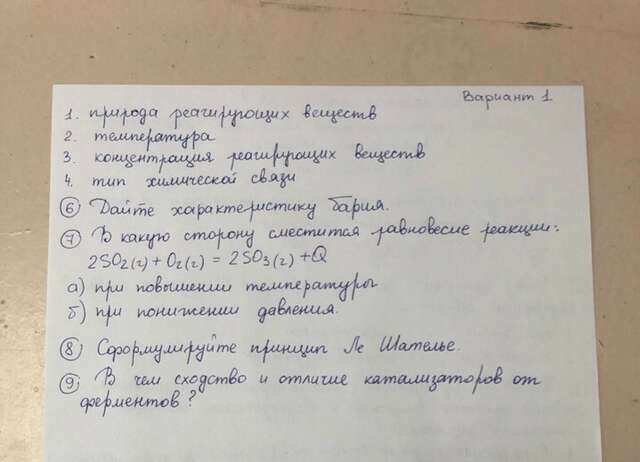 Вариант 1
1. природа реагирующих веществ
2. температура
3. концентрация реагирующих веществ
4. тип химической связи
6 Дайте характеристику бария.
7 В какую сторону сместится равновесие реакции:
2SO2(г) + O2(г) = 2SO3(г) + Q
а) при повышении температуры
б) при понижении давления.
8 Сформулируйте принцип Ле Шателье.
9 В чем сходство и отличие катализаторов от
ферментов?